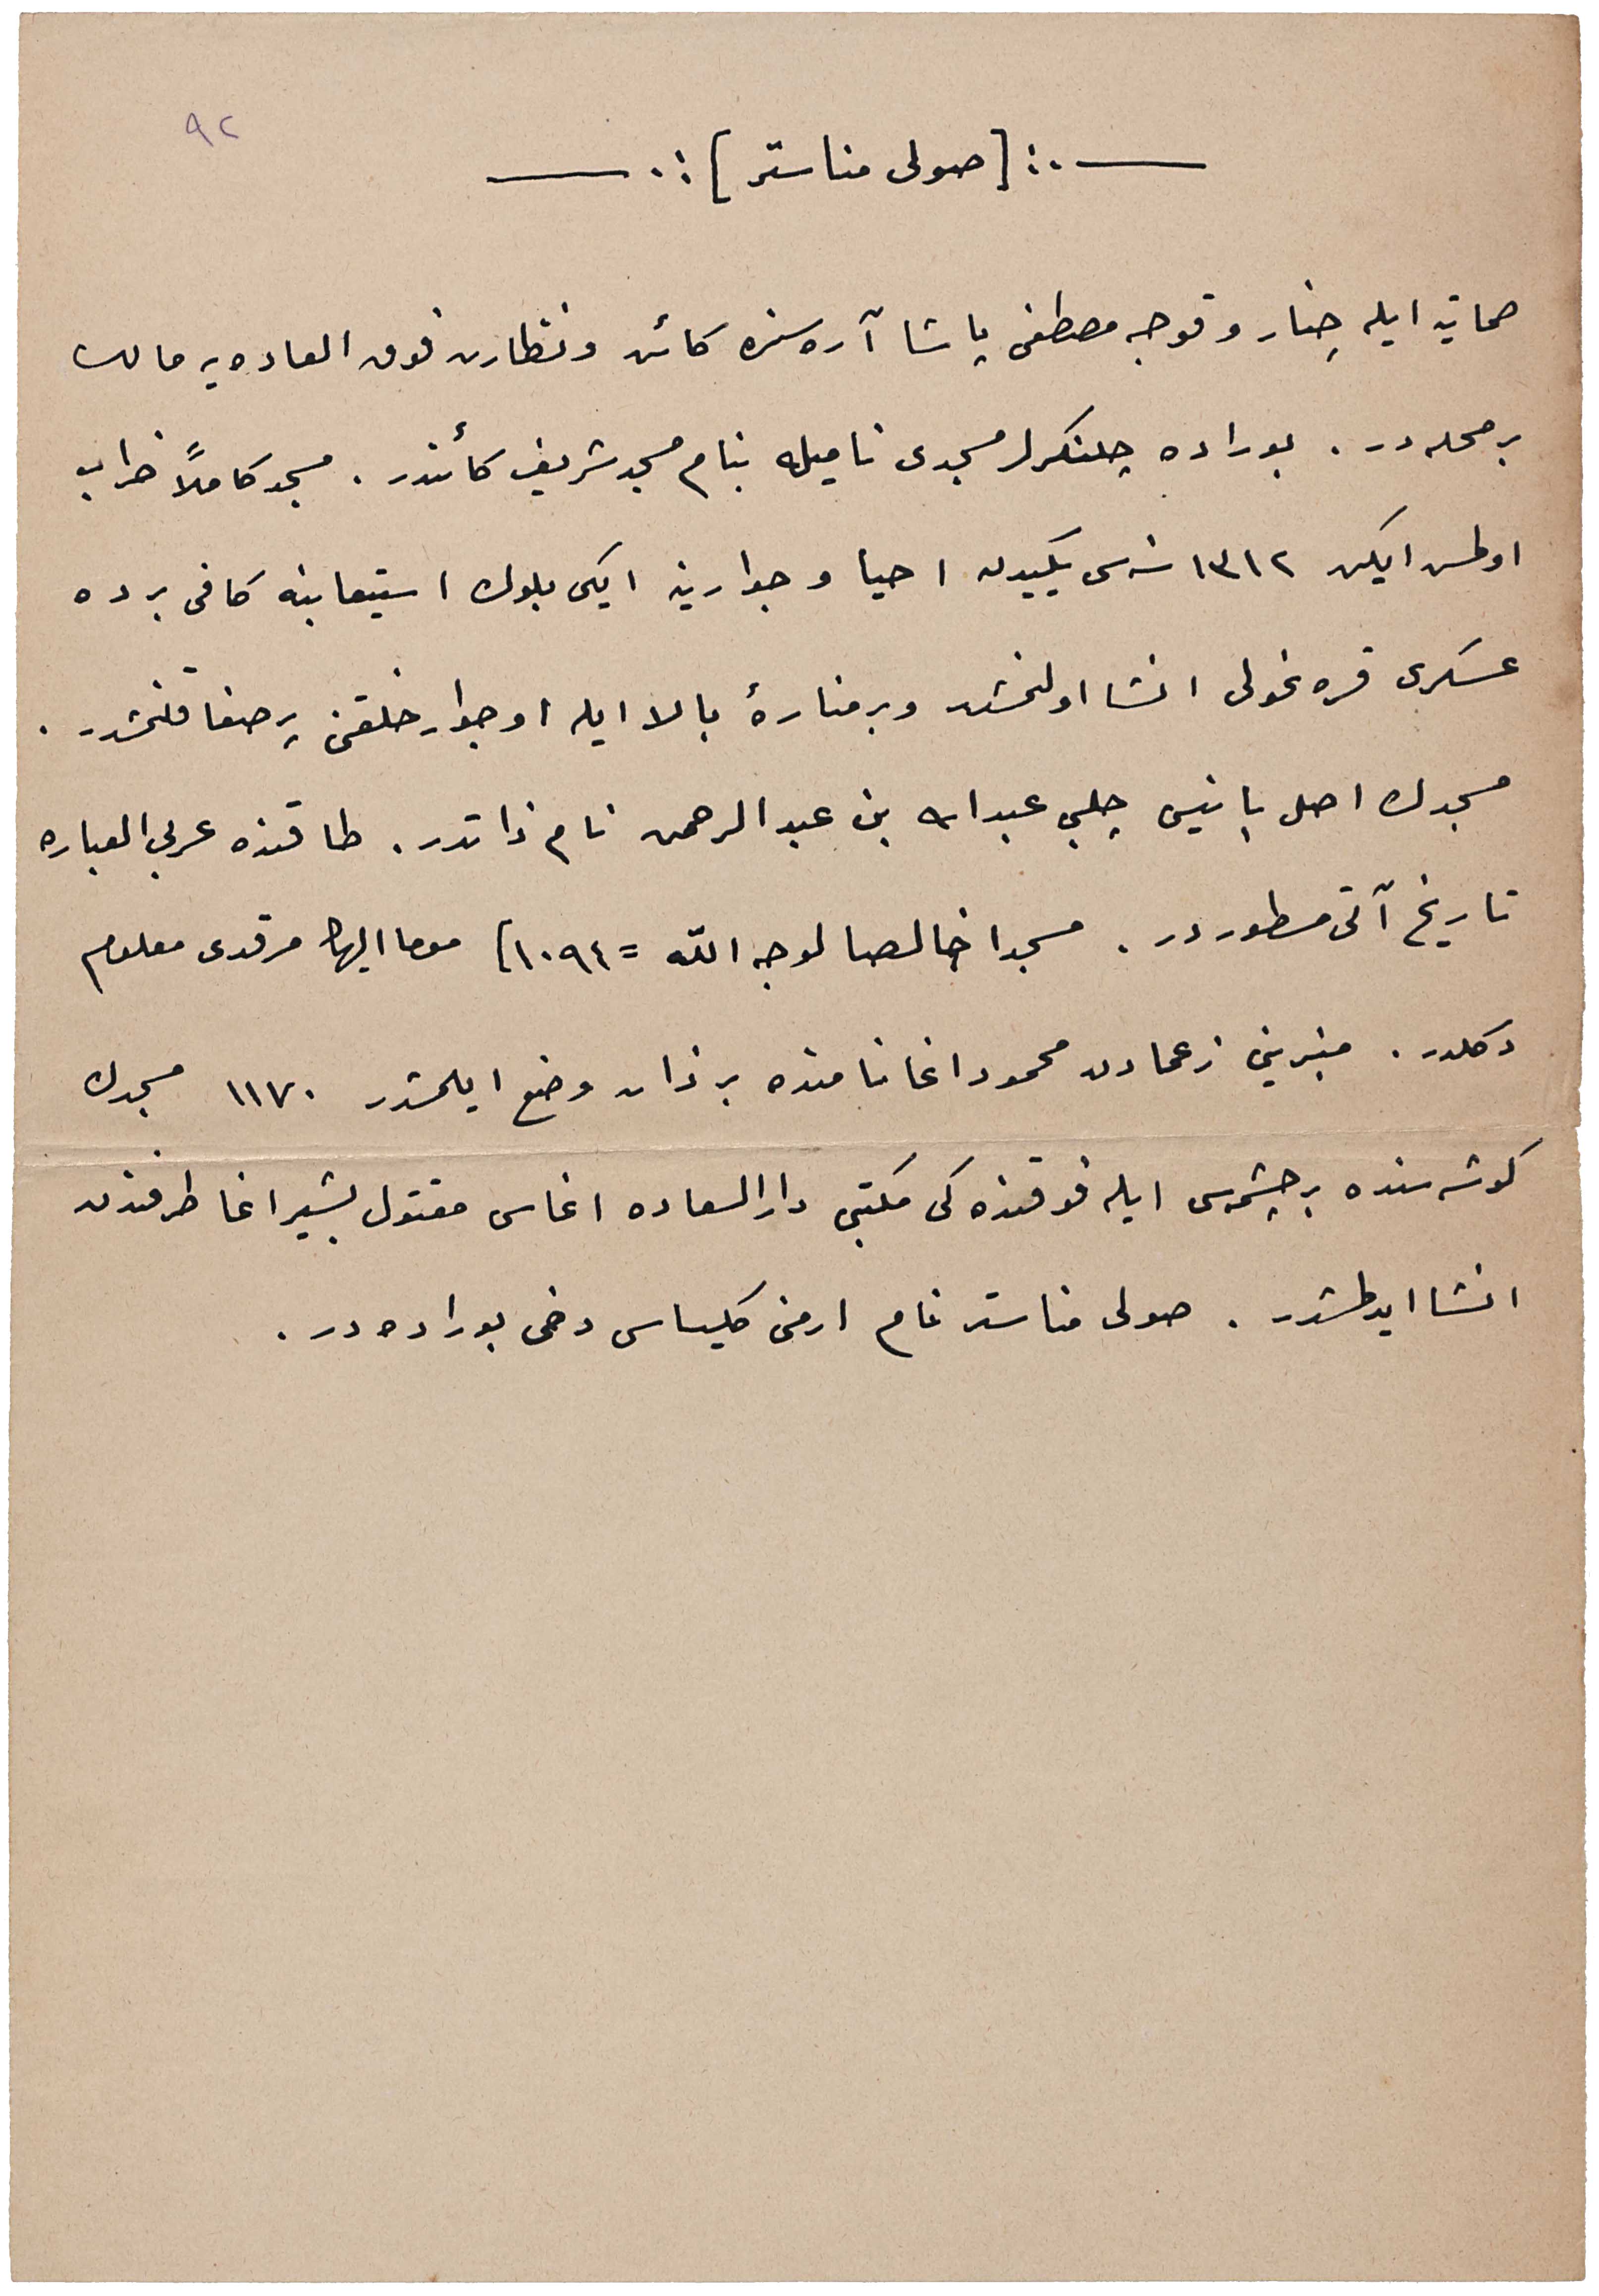 ٩٢
[صولی مناستر]
صماتیه ایله چنار و قوجه مصطفی پاشا آره سنده کائن و نظارت فوق العاده یه مالك
بر محله در . بوراده چلنكرلر مسجدی نامیله بنام مسجد شریف كائندر . مسجد كاملاً خراب
اولمش ایكن ١٣١٢ سنه سی یكیدن احیا و جوارینه ایكی بلوك استیعابنه كافی بر ده
عسكری قره غولی انشا اولنمشدر و بر منارۀ بالا ایله او جوار خلقنی پر صفا قلنمشدر .
مسجدك اصل بانیسی چلبی عبدالله بن عبد الرحمن نام ذاتدر . طاقنده عربی العباره
تاریخ آتی مسطور در . مسجدا خالصا لوجه الله = ١٠٩٤] موما الیهك مرقدی معلوم
دكلدر . منبرینی زعمادن محمود اغا نامنده بر ذات وضع ایلمشدر ١١٧٠ مسجدك
كوشه سنده بر چشمه سی ایله فوقنده كی مكتبی دار السعاده اغاسی مقتول بشیر اغا طرفندن
انشا ایدلمشدر . صولی مناستر نام ارمنی كلیساسی دخی بوراده در .